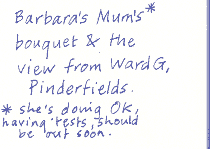 Barbara's Mum's*
bouquet & the
view from Ward G,
Pinderfields.
* she's doing OK,
having tests, should
be out soon.